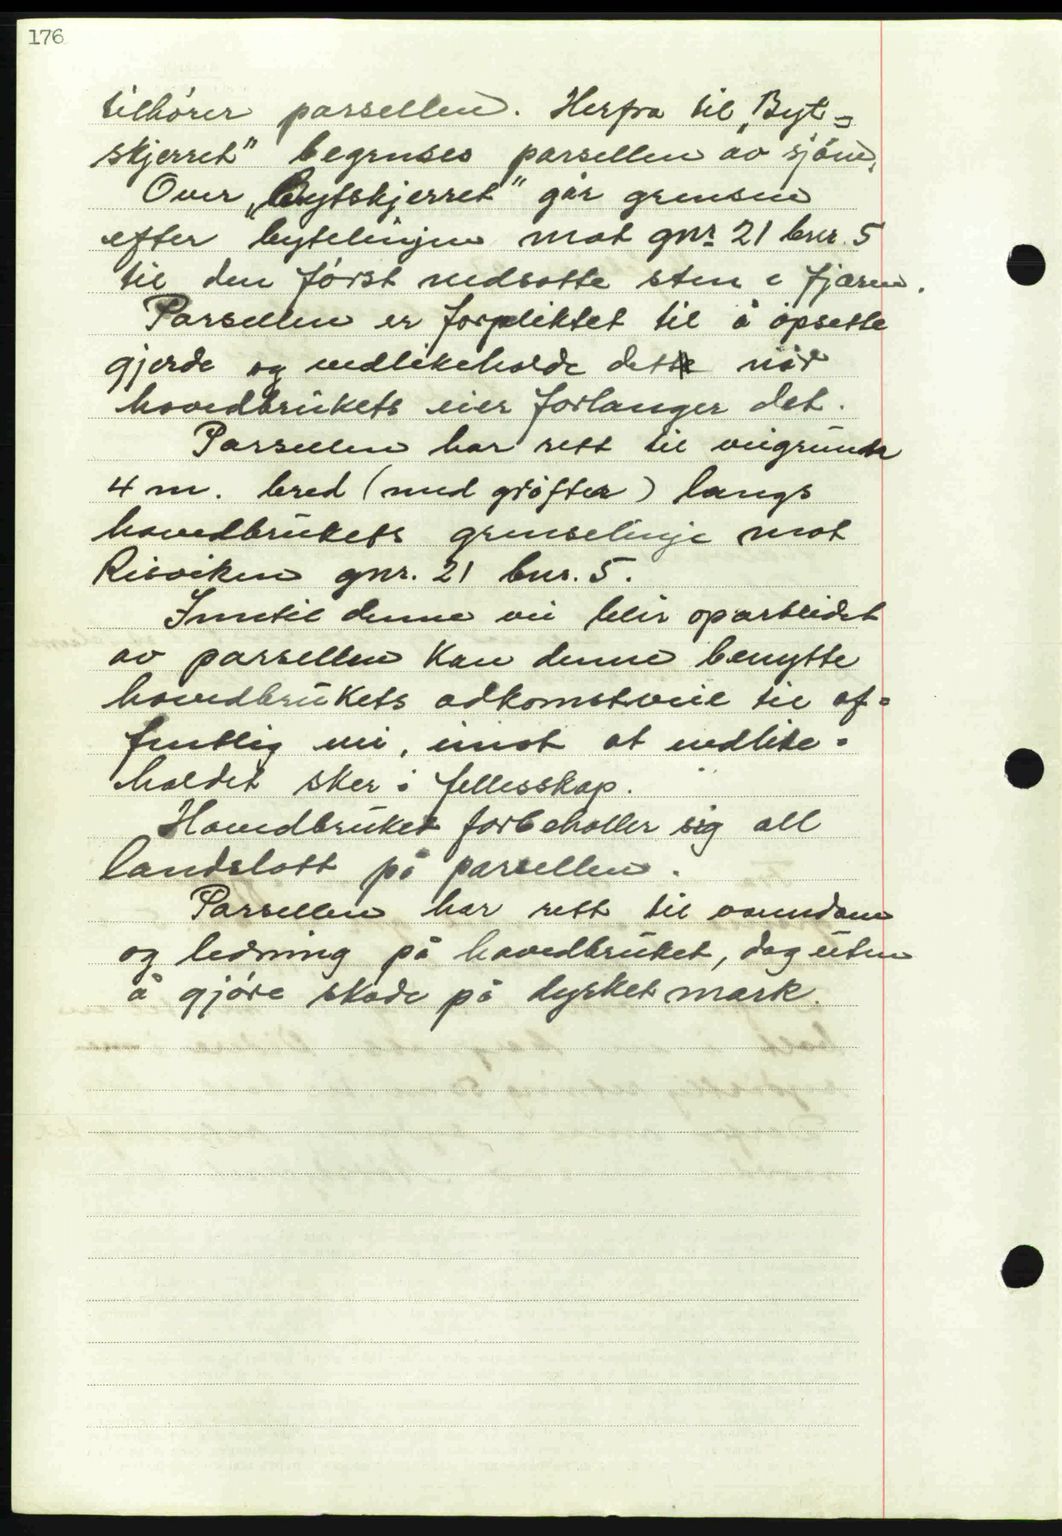 176
tilhører parsellen. Herfra til „Byt=
skjerret" begrenses parsellen av sjøen.
Over „Bytskjerret" går grensen
efter bytelinjen mot gnr. 21 bnr. 5
til den først nedsatte sten i fjæren.
Parsellen er forpliktet til å opsette
gjerde og vedlikeholde dette når
hovedbrukets eier forlanger det.
Parsellen har rett til veigrunn
4 m. bred (med grøfter) langs
hovedbrukets grenselinje mot
Risviken gnr. 21 bnr. 5.
Inntil denne vei blir oparbeidet
av parsellen kan denne benytte
hovedbrukets adkomstveie til of=
fentlig vei, imot at vedlike=
holdet sker i fellesskap.
Hovedbruket forbeholler sig all
landslott på parsellen.
Parsellen har rett til vanndam
og ledning på hovedbruket, dog uten
å gjøre skade på dyrket mark.